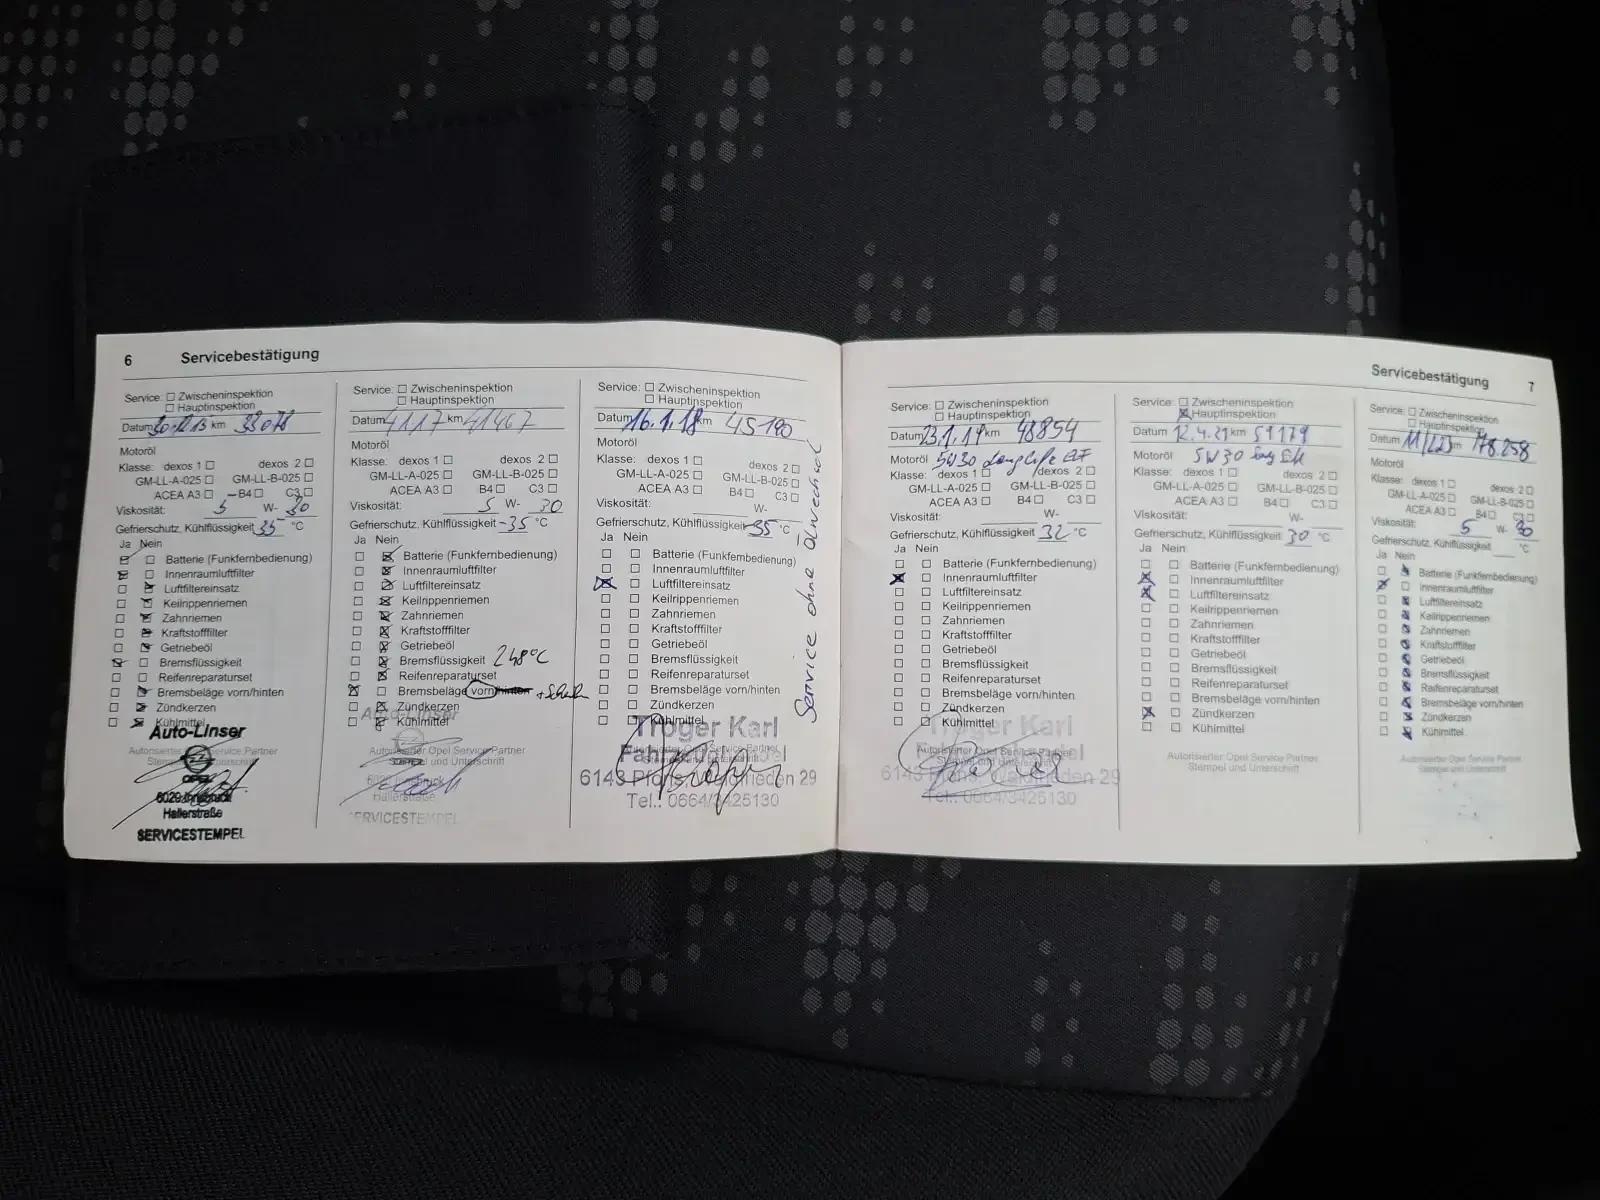 6 Servicebestätigung
Service: Zwischeninspektion
Hauptinspektion
Datum km 33078
Motoröl
Klasse: dexos 1 dexos 2
GM-LL-A-025 GM-LL-B-025
ACEA A3 B4 C3
Viskosität: 5 W- 30
Gefrierschutz, Kühlflüssigkeit 35 °C
Ja Nein
Batterie (Funkfernbedienung)
Innenraumluftfilter
Luftfiltereinsatz
Keilrippenriemen
Zahnriemen
Kraftstofffilter
Getriebeöl
Bremsflüssigkeit
Reifenreparaturset
Bremsbeläge vorn/hinten
Zündkerzen
Kühlmittel
Auto-Linser
Autorisierter Opel Service Partner
OPEL
6020 Innsbruck
Hallerstraße
SERVICESTEMPEL
Service: Zwischeninspektion
Hauptinspektion
Datum 4117 km 41467
Motoröl
Klasse: dexos 1 dexos 2
GM-LL-A-025 GM-LL-B-025
ACEA A3 B4 C3
Viskosität: 5 W- 30
Gefrierschutz, Kühlflüssigkeit -35 °C
Ja Nein
Batterie (Funkfernbedienung)
Innenraumluftfilter
Luftfiltereinsatz
Keilrippenriemen
Zahnriemen
Kraftstofffilter
Getriebeöl
Bremsflüssigkeit 248°C
Reifenreparaturset
Bremsbeläge vorn/hinten
Zündkerzen
Kühlmittel
Auto-Linser
Autorisierter Opel Service Partner
Stempel und Unterschrift
6020 Innsbruck
Hallerstraße
SERVICESTEMPEL
Service: Zwischeninspektion
Hauptinspektion
Datum 16.1.18 km 45190
Motoröl
Klasse: dexos 1 dexos 2
GM-LL-A-025 GM-LL-B-025
ACEA A3 B4 C3
Viskosität: W-
Gefrierschutz, Kühlflüssigkeit -35 °C
Ja Nein
Batterie (Funkfernbedienung)
Innenraumluftfilter
Luftfiltereinsatz
Keilrippenriemen
Zahnriemen
Kraftstofffilter
Getriebeöl
Bremsflüssigkeit
Reifenreparaturset
Bremsbeläge vorn/hinten
Zündkerzen
Kühlmittel
Service ohne Ölwechsel
Troger Karl
Autorisierter Opel Service Partner
Stempel und Unterschrift
6143 29
Tel.: 0664/3425130
Servicebestätigung 7
Service: Zwischeninspektion
Hauptinspektion
Datum 23.1.19 km 48854
Motoröl 5W30 Longlife
Klasse: dexos 1 dexos 2
GM-LL-A-025 GM-LL-B-025
ACEA A3 B4 C3
Viskosität: W-
Gefrierschutz, Kühlflüssigkeit 32 °C
Ja Nein
Batterie (Funkfernbedienung)
Innenraumluftfilter
Luftfiltereinsatz
Keilrippenriemen
Zahnriemen
Kraftstofffilter
Getriebeöl
Bremsflüssigkeit
Reifenreparaturset
Bremsbeläge vorn/hinten
Zündkerzen
Kühlmittel
Troger Karl
Autorisierter Opel Service Partner
Stempel und Unterschrift
6143 29
Tel.: 0664/3425130
Service: Zwischeninspektion
Hauptinspektion
Datum 12.4.21 km 59179
Motoröl 5W30
Klasse: dexos 1 dexos 2
GM-LL-A-025 GM-LL-B-025
ACEA A3 B4 C3
Viskosität: W-
Gefrierschutz, Kühlflüssigkeit 30 °C
Ja Nein
Batterie (Funkfernbedienung)
Innenraumluftfilter
Luftfiltereinsatz
Keilrippenriemen
Zahnriemen
Kraftstofffilter
Getriebeöl
Bremsflüssigkeit
Reifenreparaturset
Bremsbeläge vorn/hinten
Zündkerzen
Kühlmittel
Autorisierter Opel Service Partner
Stempel und Unterschrift
Service: Zwischeninspektion
Hauptinspektion
Datum km
Motoröl
Klasse: dexos 1 dexos 2
GM-LL-A-025 GM-LL-B-025
ACEA A3 B4 C3
Viskosität: 5 W- 30
Gefrierschutz, Kühlflüssigkeit °C
Ja Nein
Batterie (Funkfernbedienung)
Innenraumluftfilter
Luftfiltereinsatz
Keilrippenriemen
Zahnriemen
Kraftstofffilter
Getriebeöl
Bremsflüssigkeit
Reifenreparaturset
Bremsbeläge vorn/hinten
Zündkerzen
Kühlmittel
Autorisierter Opel Service Partner
Stempel und Unterschrift